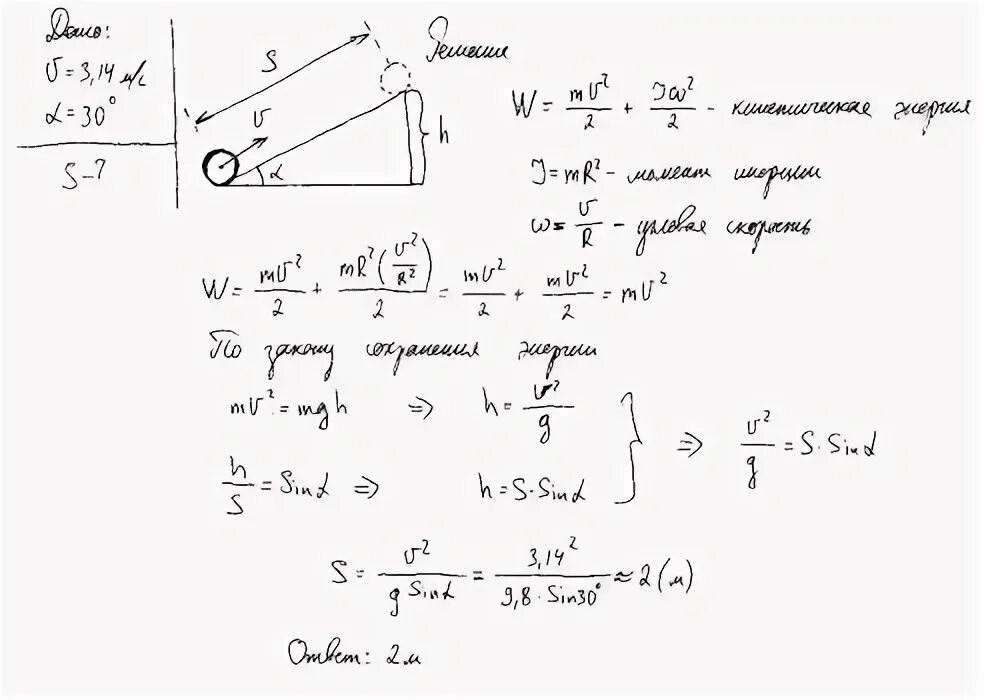 Дано:
υ = 3,14 м/с
α = 30°
S - ?
S
υ
α
h
Решение
W = mυ²/2 + Jω²/2 - кинетическая энергия
J = mR² - момент инерции
ω = υ/R - угловая скорость
W = mυ²/2 + mR²(υ²/R²)/2 = mυ²/2 + mυ²/2 = mυ²
По закону сохранения энергии
mυ² = mgh ⇒ h = υ²/g
h/S = Sinα ⇒ h = S·Sinα } ⇒ υ²/g = S·Sinα
S = υ²/(g Sinα) = 3,14²/(9,8·Sin30°) ≈ 2 (м)
Ответ: 2м